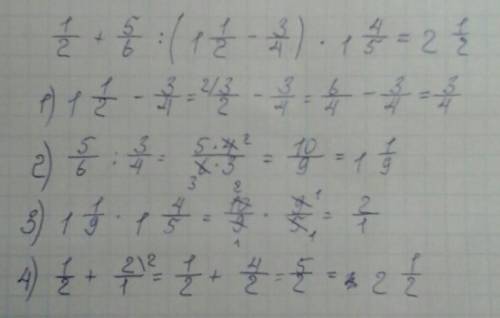 1/2 + 5/6 : (1 1/2 - 3/4) · 1 4/5 = 2 1/2
1) 1 1/2 - 3/4 = 2/ 3/2 - 3/4 = 6/4 - 3/4 = 3/4
2) 5/6 : 3/4 = 5·4 2/6·3 3 = 10/9 = 1 1/9
3) 1 1/9 · 1 4/5 = 10 2/9 1 · 9 1/5 1 = 2/1
4) 1/2 + 2/1 \2 = 1/2 + 4/2 = 5/2 = 2 1/2